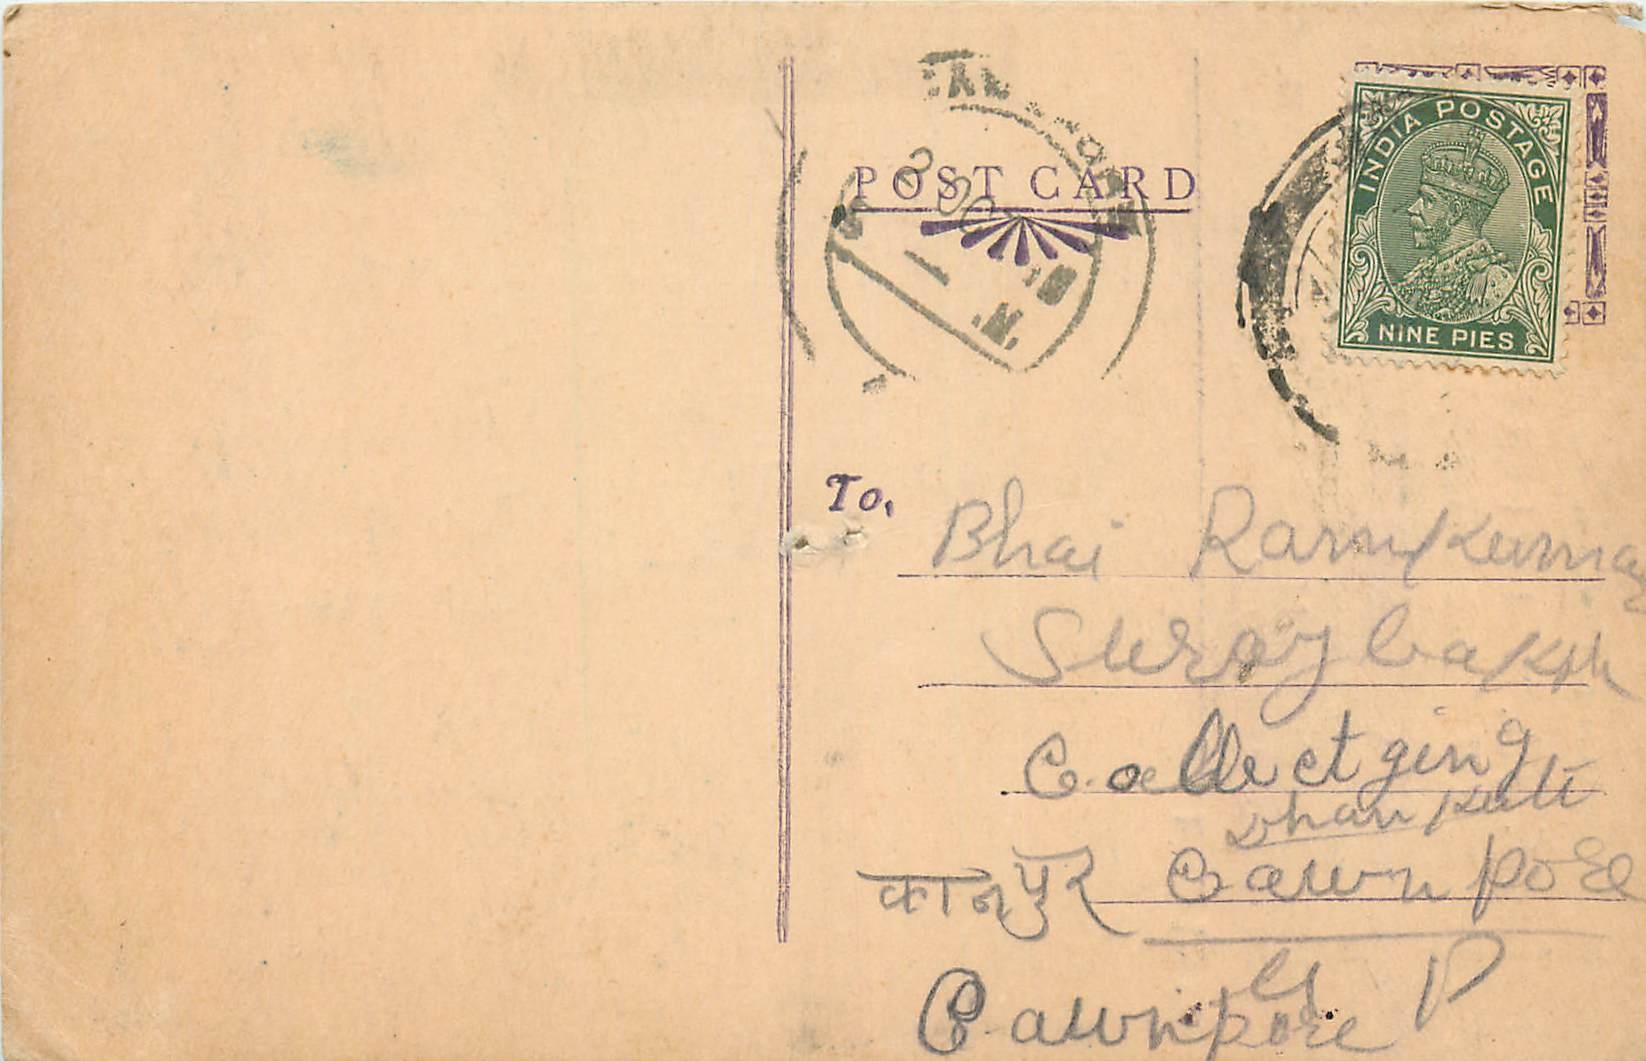 POST CARD
INDIA POSTAGE
NINE PIES
To,
Bhai Ramkumar
Surajbaksh
Collectging
Dhankutti
कानपुर Cawnpore
U P
Cawnpore